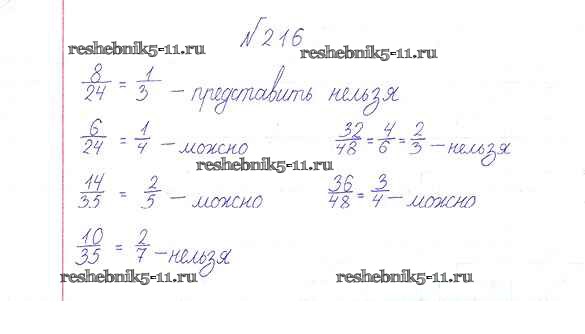 №216
reshebnik5-11.ru reshebnik5-11.ru
8/24 = 1/3 – представить нельзя
6/24 = 1/4 – можно 32/48 = 4/6 = 2/3 – нельзя
reshebnik5-11.ru
14/35 = 2/5 – можно 36/48 = 3/4 – можно
10/35 = 2/7 – нельзя
reshebnik5-11.ru reshebnik5-11.ru